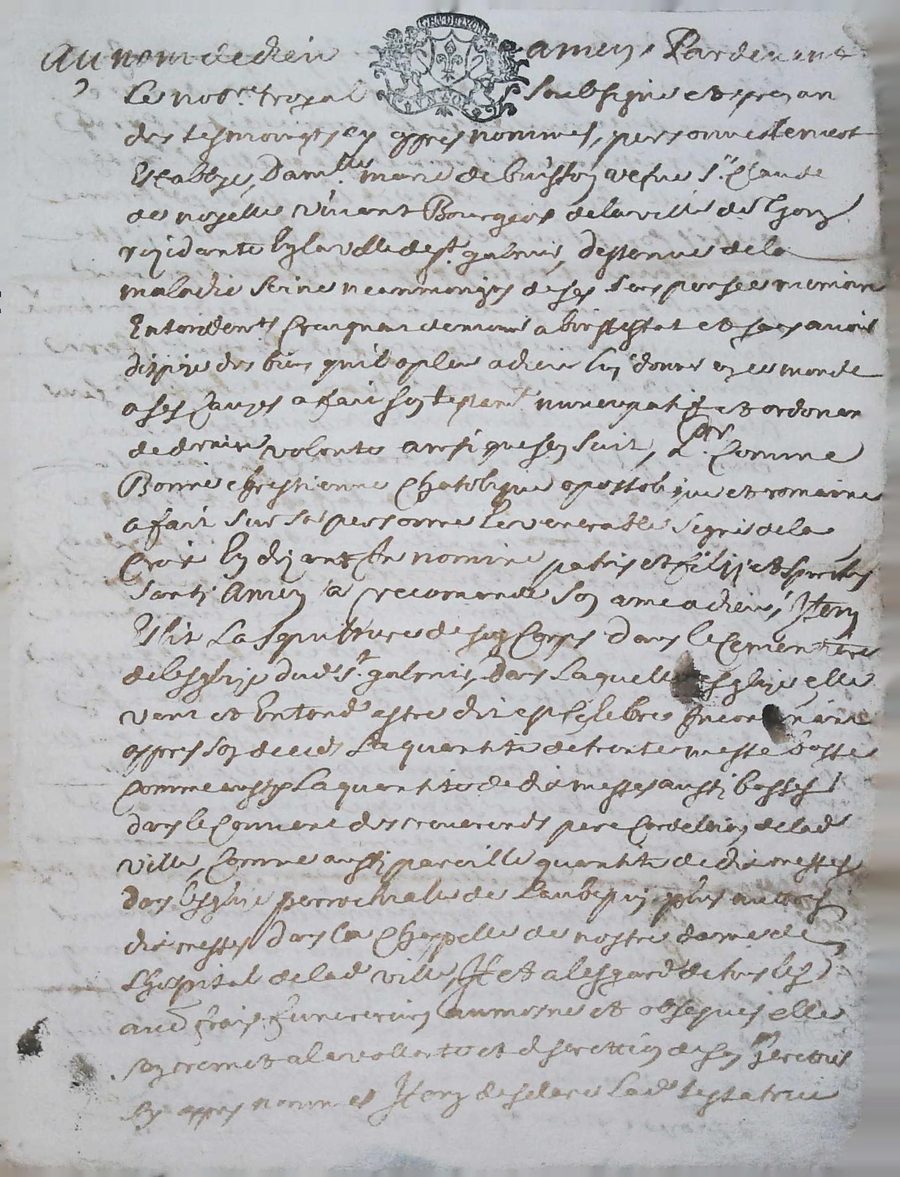 GEN DE LYON
Au nom de dieu amen, Pardevant
Le not.re royal soubsigné et presan
des tesmoingts cy appres nommes, personnellement
Establye, Dam.lle marie de buisson vefve S.r Claude
de noyelle vivant Bourgeois de la ville de Lyon
residante en la ville de S.t galmie, destenue de la
maladie seine neanmoingts de ses sens pensée memoire
Entendem.t Craignant de mourir abintestat et sans avoir
dispozé des biens qu'il a pleu a dieu luy donner en ce monde
a ses causes a fait son testam.t nuncupatif et ordonnance
de derniere volonté ainsi que sen suit, p.r Comme
Bonne chrestienne Chatolique apostolique et romaine
a fait sur sa personne le venerable signe de la
Croix En dizant In nomine patris et filij et spiritus
santi Amen a recomandé son ame a dieu, Item
Eslit La sepulture de son Corps dans le Cementere
de lesglise dud. S.t galmie, dans Laquelle Esglise elle
veut et Entend estre dit et celebré Incontinant
appres son decedz La quantité de trente messe basse
Comme aussy La quantité de dix messes aussi basses
dans le Couvent des reverends pere Cordeliers de lad.
ville, Comme aussi pareille quantité de dix messes
dans lesglise parrochialle de Laubepin plus autres
dix messes dans la Chappelle de nostre dame de
Lhospital de lad. ville, Et a lesgard de tous les
aud. frais funereries aumosne et obseques elle
sen remet a la vollonté et discrettion de son heretier
Cy appres nommé Item desclare Lad. testatrice